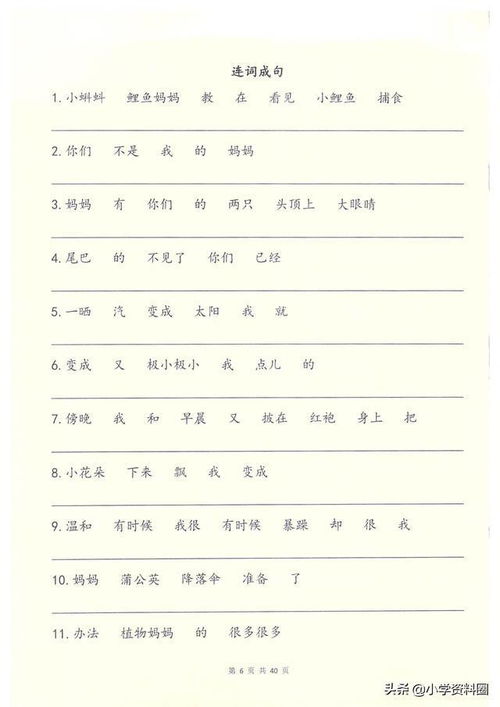 连词成句
1.小蝌蚪 鲤鱼妈妈 教 在 看见 小鲤鱼 捕食
2.你们 不是 我 的 妈妈
3.妈妈 有 你们 的 两只 头顶上 大眼睛
4.尾巴 的 不见了 你们 已经
5.一晒 汽 变成 太阳 我 就
6.变成 又 极小极小 我 点儿 的
7.傍晚 我 和 早晨 又 披在 红袍 身上 把
8.小花朵 下来 飘 我 变成
9.温和 有时候 我很 有时候 暴躁 却 很 我
10.妈妈 蒲公英 降落伞 准备 了
11.办法 植物妈妈 的 很多很多
第 6 页 共 40 页
头条 @小学资料圈